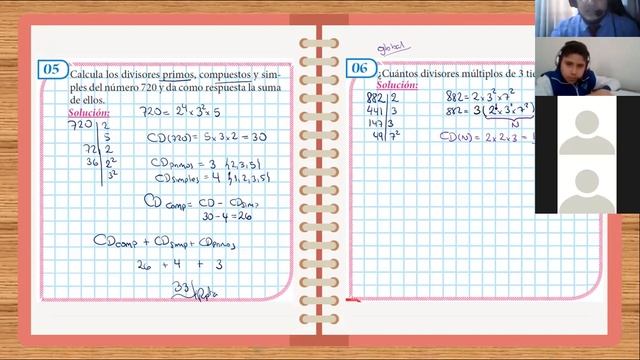 05
Calcula los divisores primos, compuestos y sim-
ples del número 720 y da como respuesta la suma
de ellos.
Solución:
720 = 2⁴ x 3² x 5
720 | 2
5
72 | 2
36 | 2²
3²
CD(720) = 5 x 3 x 2 = 30
CD primos = 3 {2,3,5}
CD simples = 4 {1,2,3,5}
CD comp = CD - CD simp
30 - 4 = 26
CD comp + CD simp + CD primos
26 + 4 + 3
33 Rpta
global
06
¿Cuántos divisores múltiplos de 3 tie
Solución:
882 | 2
441 | 3
147 | 3
49 | 7²
882 = 2 x 3² x 7²
882 = 3 (2 x 3 x 7²)
N
CD(N) = 2 x 2 x 3 =